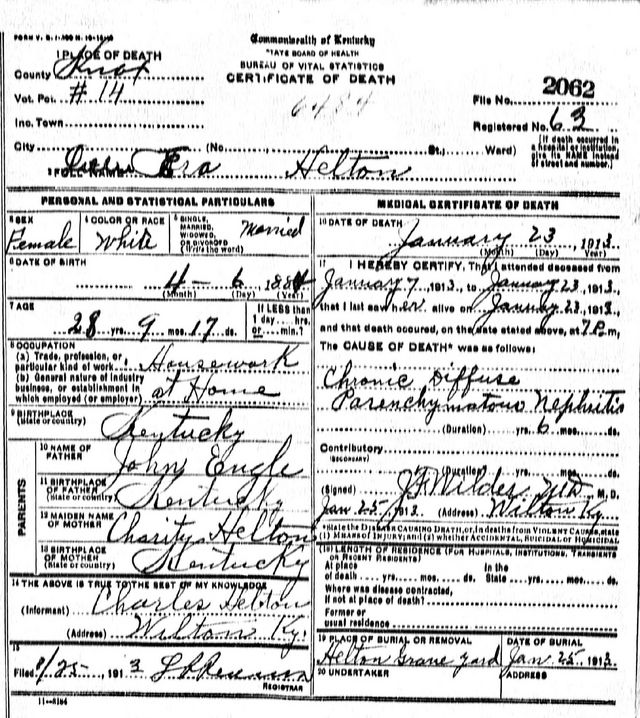 FORM V. S. 1-100 M. 10-16-10
Commonwealth of Kentucky
STATE BOARD OF HEALTH
BUREAU OF VITAL STATISTICS
CERTIFICATE OF DEATH
1 PLACE OF DEATH
County Knox
Vot. Pct. #14
Inc. Town
City (No. St.; Ward)
6484
File No. 2062
Registered No. 63
(If death occurred in a hospital or institution give its NAME instead of street and number.)
2 FULL NAME Era Helton
PERSONAL AND STATISTICAL PARTICULARS
3 SEX Female
4 COLOR OR RACE White
5 SINGLE, MARRIED, WIDOWED, OR DIVORCED (Write the word) Married
6 DATE OF BIRTH 4 - 6 1884
(Month) (Day) (Year)
7 AGE 28 yrs. 9 mos. 17 ds.
If LESS than 1 day....hrs. or....min.?
8 OCCUPATION
(a) Trade, profession, or particular kind of work Housework
(b) General nature of industry business, or establishment in which employed (or employer) at Home
9 BIRTHPLACE (State or country) Kentucky
PARENTS
10 NAME OF FATHER John Engle
11 BIRTHPLACE OF FATHER (State or country) Kentucky
12 MAIDEN NAME OF MOTHER Charity Helton
13 BIRTHPLACE OF MOTHER (State or country) Kentucky
14 THE ABOVE IS TRUE TO THE BEST OF MY KNOWLEDGE
(Informant) Charles Helton
(Address) Wilton Ky.
15
Filed 1/25 1913
REGISTRAR
11-5184
MEDICAL CERTIFICATE OF DEATH
16 DATE OF DEATH January 23, 1913
(Month) (Day) (Year)
17 I HEREBY CERTIFY, That I attended deceased from
January 7 1913, to January 23, 1913,
that I last saw her alive on January 23, 1913,
and that death occured, on the date stated above, at 7 P m,
The CAUSE OF DEATH* was as follows:
Chronic Diffuse
Parenchymatous Nephritis
(Duration) yrs. 6 mos. ds.
Contributory
(SECONDARY)
(Duration) yrs. mos. ds.
(Signed) J F Wilder M.D., M. D.
Jan 25, 1913 (Address) Wilton Ky
*State the DISEASE CAUSING DEATH, or, in deaths from VIOLENT CAUSES, state
(1) MEANS OF INJURY; and (2) whether ACCIDENTAL, SUICIDAL or HOMICIDAL
18 LENGTH OF RESIDENCE (FOR HOSPITALS, INSTITUTIONS, TRANSIENTS
OR RECENT RESIDENTS)
At place of death yrs. mos. ds. In the State yrs. mos. ds.
Where was disease contracted, if not at place of death?
Former or usual residence
19 PLACE OF BURIAL OR REMOVAL Helton Grave yard
DATE OF BURIAL Jan 25, 1913
20 UNDERTAKER
ADDRESS